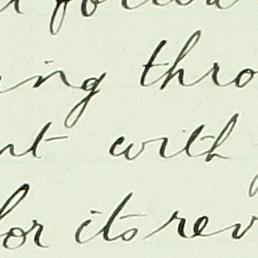 follow
ing thro
nt with
for its rev